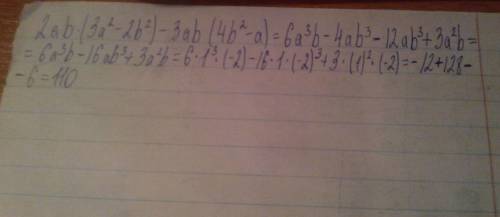 2ab·(3a²-2b²)-3ab·(4b²-a)=6a³b-4ab³-12ab³+3a²b=
=6a³b-16ab³+3a²b=6·1³·(-2)-16·1·(-2)³+3·(1)²·(-2)=-12+128-
-6=110